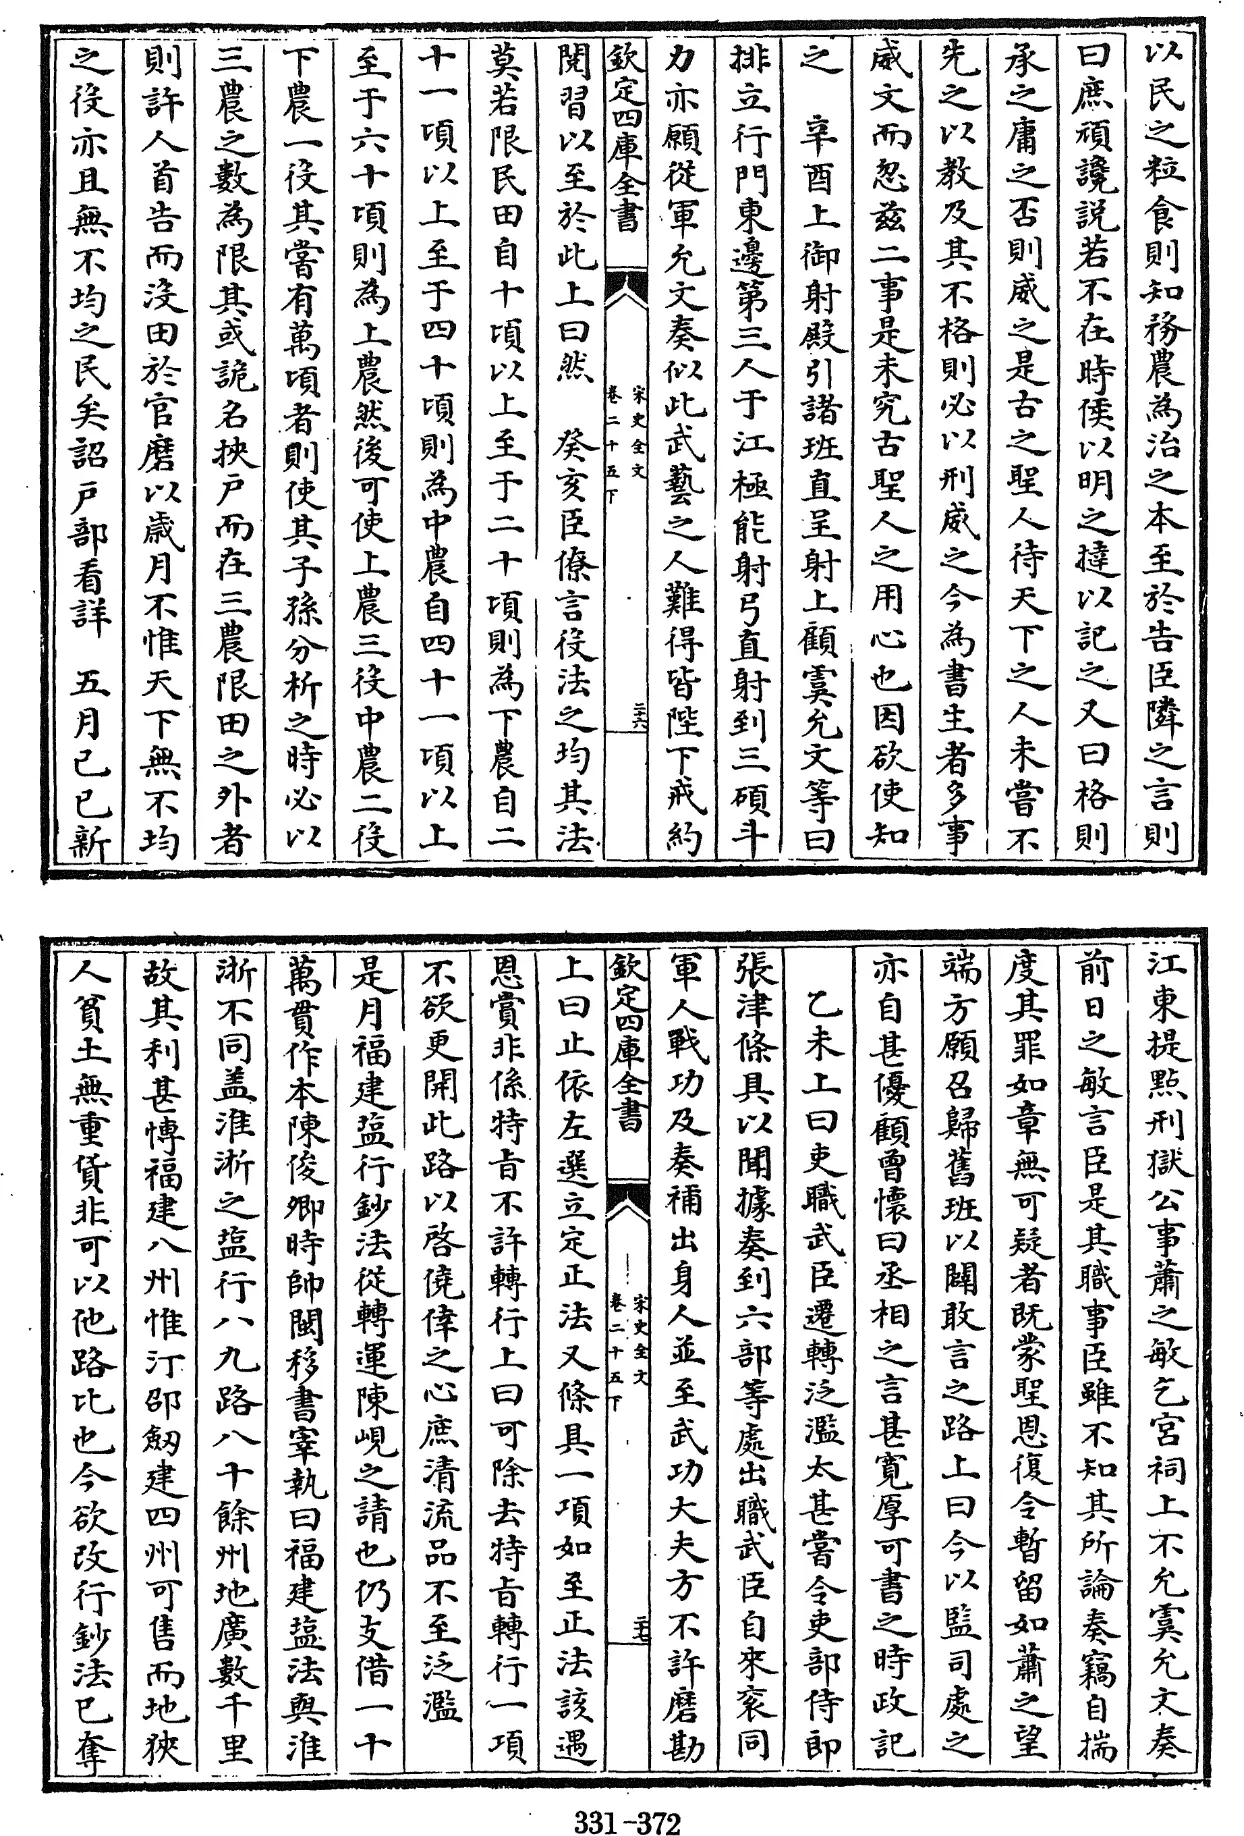 以民之粒食則知務農為治之本至於告臣隣之言則
曰庶頑讒説若不在時侯以明之撻以記之又曰格則
承之庸之否則威之是古之聖人待天下之人未嘗不
先之以教及其不格則必以刑威之今為書生者多事
威文而忽兹二事是未究古聖人之用心也因欲使知
之　辛酉上御射殿引諸班直呈射上顧虞允文等曰
排立行門東邊第三人于江極能射弓直射到三碩斗
力亦願從軍允文奏似此武藝之人難得皆陛下戒約
欽定四庫全書
宋史全文
卷二十五下
二十六
閲習以至於此上曰然　癸亥臣僚言役法之均其法
莫若限民田自十頃以上至于二十頃則為下農自二
十一頃以上至于四十頃則為中農自四十一頃以上
至于六十頃則為上農然後可使上農三役中農二役
下農一役其嘗有萬頃者則使其子孫分析之時必以
三農之數為限其或詭名挾户而在三農限田之外者
則許人首告而沒田於官磨以歲月不惟天下無不均
之役亦且無不均之民矣詔户部看詳　五月己巳新
江東提點刑獄公事蕭之敏乞宫祠上不允虞允文奏
前日之敏言臣是其職事臣雖不知其所論奏竊自揣
度其罪如章無可疑者既蒙聖恩復令暫留如蕭之望
端方願召歸舊班以闢敢言之路上曰今以監司處之
亦自甚優顧曾懷曰丞相之言甚寛厚可書之時政記
乙未上曰吏職武臣遷轉泛濫太甚嘗令吏部侍郎
張津條具以聞據奏到六部等處出職武臣自來衮同
軍人戰功及奏補出身人並至武功大夫方不許磨勘
欽定四庫全書
宋史全文
卷二十五下
二十七
上曰止依左選立定正法又條具一項如至正法該遇
恩賞非係特旨不許轉行上曰可除去特旨轉行一項
不欲更開此路以啓僥倖之心庶清流品不至泛濫
是月福建鹽行鈔法從轉運陳峴之請也仍支借一十
萬貫作本陳俊卿時帥閩移書宰執曰福建鹽法與淮
淅不同盖淮淅之鹽行八九路八十餘州地廣數千里
故其利甚博福建八州惟汀邵劔建四州可售而地狹
人貧土無重貨非可以他路比也今欲改行鈔法已奪
331-372